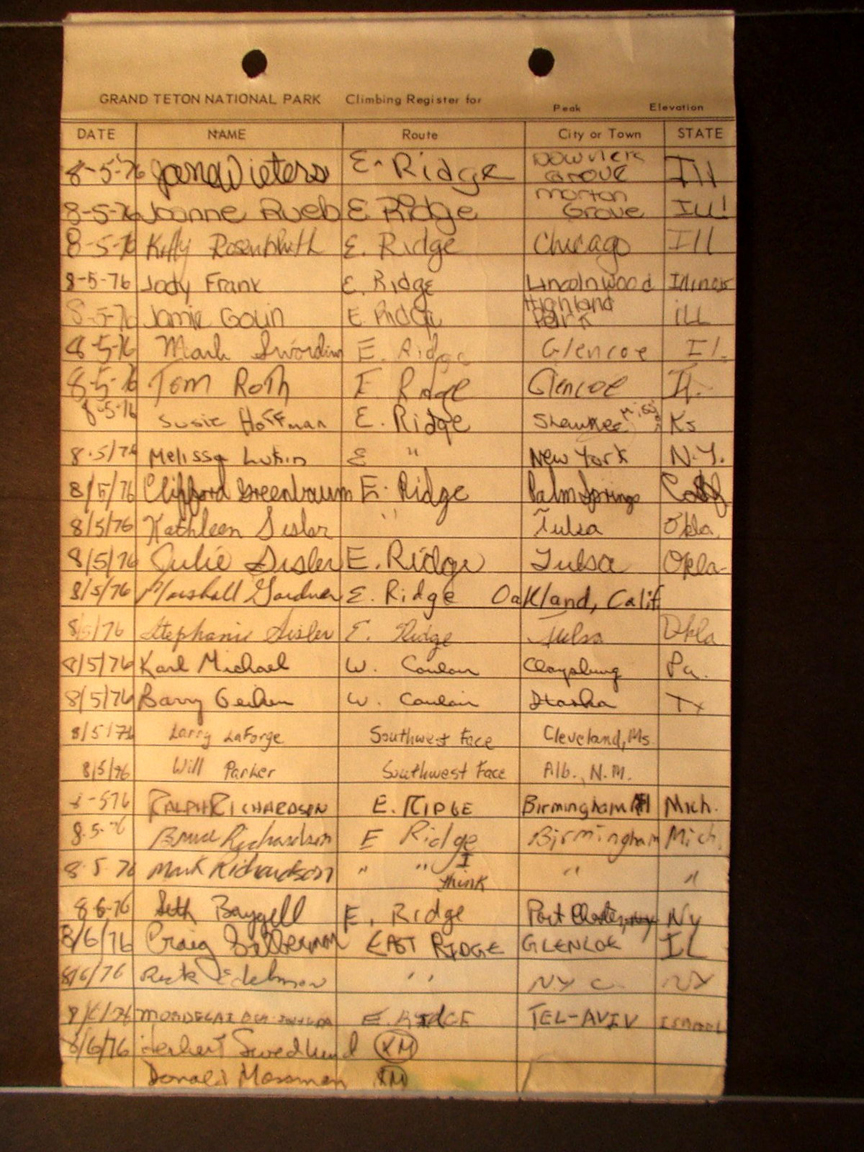 GRAND TETON NATIONAL PARK Climbing Register for Peak Elevation
DATE NAME Route City or Town STATE
8-5-76 Jane Wieters E. Ridge Downers Grove Ill
8-5-76 Joanne Rueb E Ridge Morton Grove Ill
8-5-76 Kitty Rosenbluth E. Ridge Chicago Ill
8-5-76 Jody Frank E. Ridge Lincolnwood Illinois
8-5-76 Jamie Golin E Ridge Highland Park ill
8-5-76 Mark E. Ridge Glencoe Il.
8-5-76 Tom Roth E Rdge Glencoe Il.
8-5-76 Susie Hoffman E. Ridge Shawnee Ks
8-5/76 Melissa Lukin E " New York N.Y.
8/5/76 Clifford Greenbaum E. Ridge Palm Springs Calif
8/5/76 Kathleen Sisler " Tulsa Okla.
8/5/76 Julie Sisler E. Ridge Tulsa Okla.
8/5/76 Marshall Gardner E. Ridge Oakland, Calif
8/5/76 Stephanie Sisler E. Ridge Tulsa Okla
8/5/76 Karl Michael W. Couloir Claysburg Pa.
8/5/76 Barry W. Couloir Tx
8/5/76 Larry LaForge Southwest Face Cleveland, Ms.
8/5/76 Will Parker Southwest Face Alb., N.M.
8-576 RALPH RICHARDSON E. RIDGE Birmingham Mich.
8-5-76 Bruce Richardson E Ridge Birmingham Mich.
8-5-76 Mark Richardson " " I think " "
8-6-76 Seth E. Ridge Port NY
8/6/76 Craig Silberman EAST RIDGE GLENCOE IL
8/6/76 Rick Edelman " NYC NY
8/6/76 MORDECAI E. RIDGE TEL-AVIV Israel
8/6/76 Herbert Swedlund XM
Donald Mossman XM